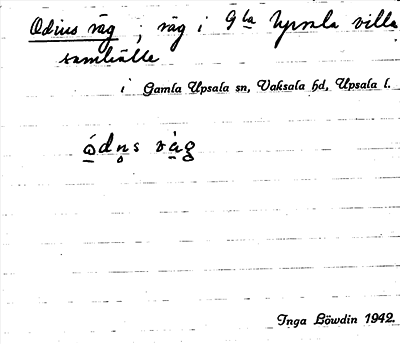 Odins väg ; väg i Gla Upsala villa
samhälle
i Gamla Upsala sn, Vaksala hd, Upsala l.
ó̱dn̥s và̱g
Inga Löwdin 1942.